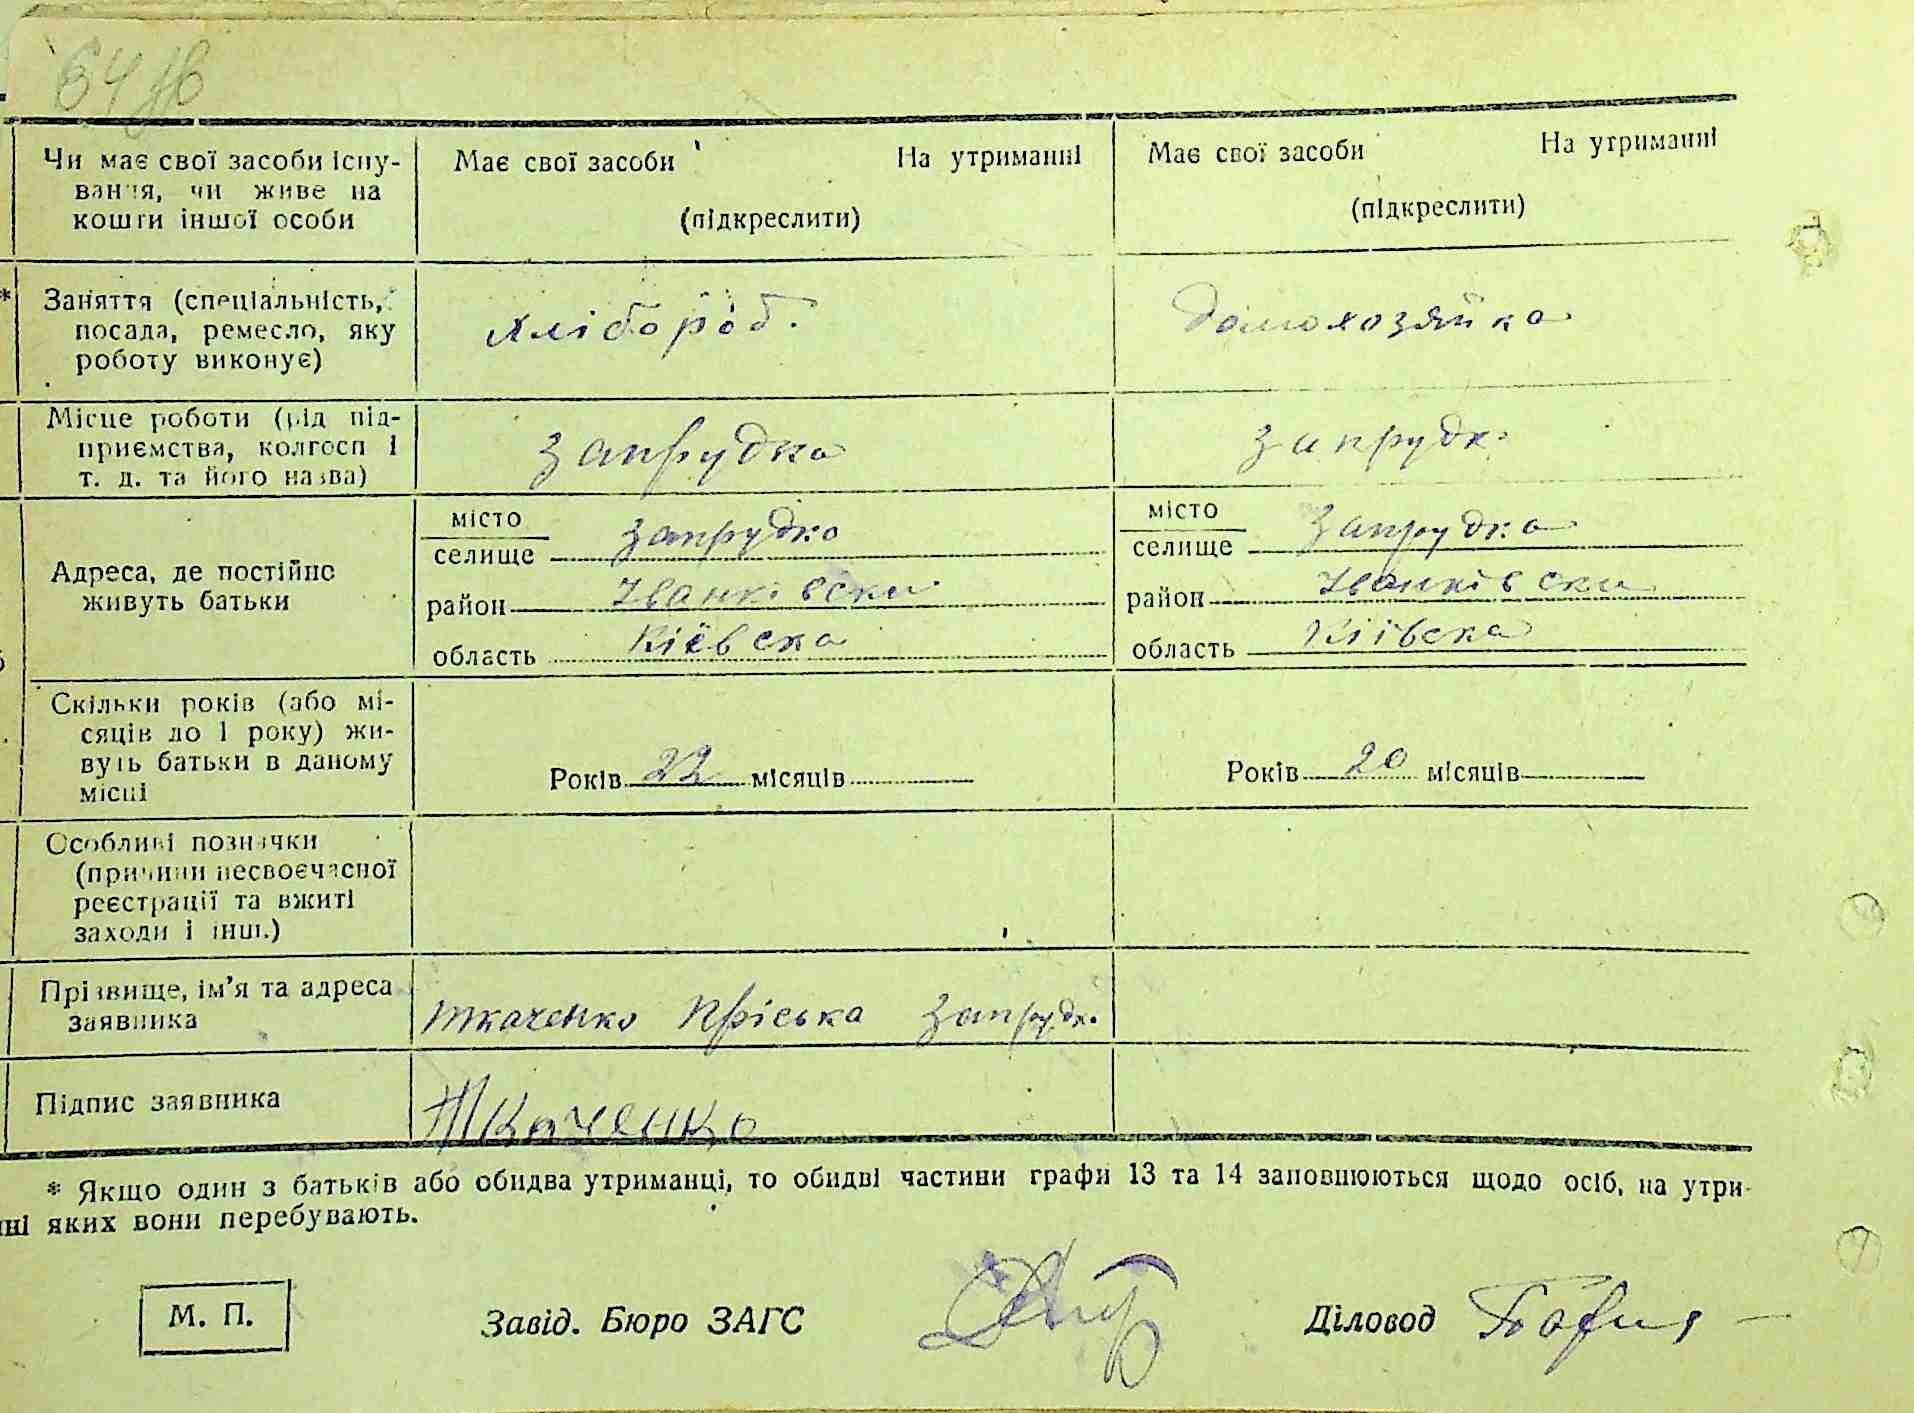 64
Чи має свої засоби існу-
вання, чи живе на
кошти іншої особи
Має свої засоби На утриманні
(підкреслити)
Має свої засоби На утриманні
(підкреслити)
* Заняття (спеціальність,
посада, ремесло, яку
роботу виконує)
хлібороб.
домохозяйка
Місце роботи (рід під-
приємства, колгосп і
т. д. та його назва)
Запрудка
Запрудк.
Адреса, де постійно
живуть батьки
місто
селище Запрудка
район Іванківски
область Кіївска
місто
селище Запрудка
район Іванківски
область Кіївска
Скільки років (або мі-
сяців до 1 року) жи-
вуть батьки в даному
місці
Років 22 місяців
Років 20 місяців
Особливі позначки
(причини несвоєчасної
реєстрації та вжиті
заходи і інш.)
Прізвище, ім'я та адреса
заявника
Ткаченко Пріська Запрудк.
Підпис заявника
Ткаченко
* Якщо один з батьків або обидва утриманці, то обидві частини графи 13 та 14 заповнюються щодо осіб, на утри-
нні яких вони перебувають.
М. П.
Завід. Бюро ЗАГС
Діловод